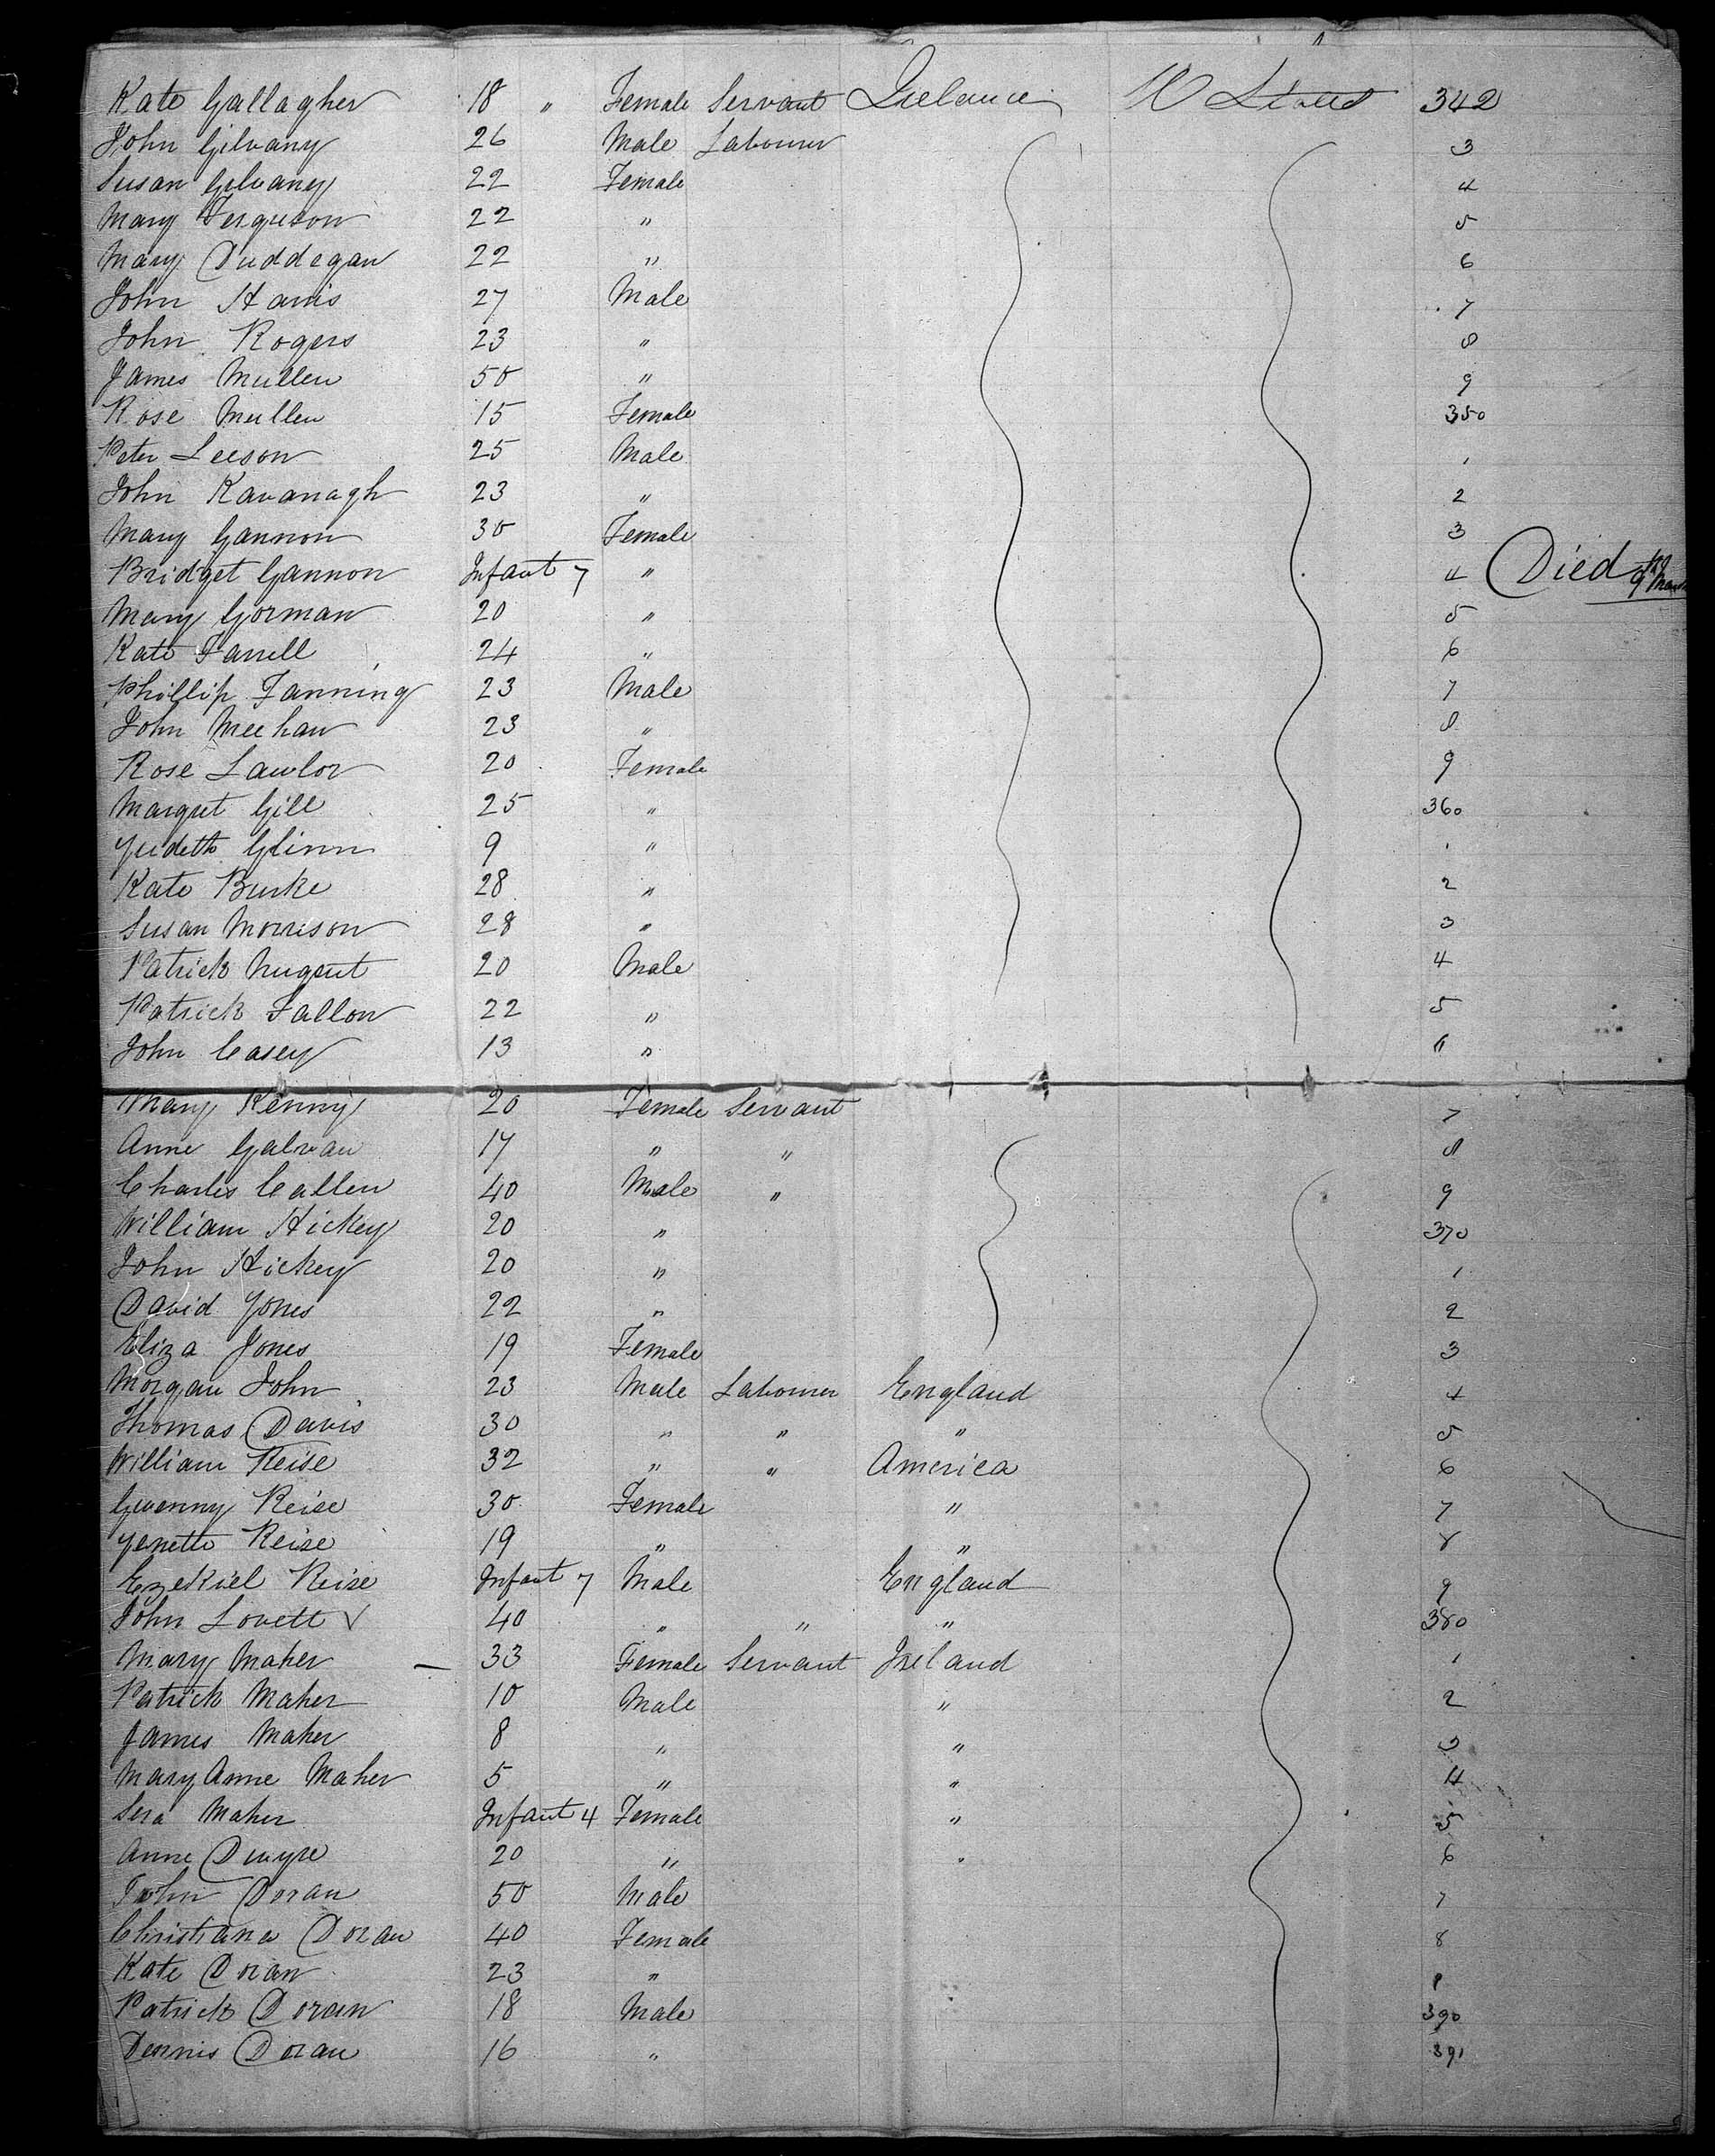 Kate Gallagher 18 " Female Servant Ireland U States 342
John Gilvany 26 Male Labourer 3
Susan Gilvany 22 Female 4
Mary Ferguson 22 " 5
Mary Cuddegan 22 " 6
John Harris 27 Male 7
John Rogers 23 " 8
James Mullen 50 " 9
Rose Mullen 15 Female 350
Peter Leeson 25 Male 1
John Kavanagh 23 " 2
Mary Gannon 30 Female 3
Bridget Gannon Infant 7 " 4 Died 9th March
Mary Gorman 20 " 5
Kate Farrell 24 " 6
Phillip Fanning 23 Male 7
John Meehan 23 " 8
Rose Lawlor 20 Female 9
Margret Gill 25 " 360
Judeth Glinn 9 " 1
Kate Burke 28 " 2
Susan Morrison 28 " 3
Patrick Nugent 20 Male 4
Patrick Fallon 22 " 5
John Casey 13 " 6
Mary Kenny 20 Female Servant 7
Anne Galvan 17 " " 8
Charles Callen 40 Male " 9
William Hickey 20 " 370
John Hickey 20 " 1
David Jones 22 " 2
Eliza Jones 19 Female 3
Morgan John 23 Male Labourer England 4
Thomas Davis 30 " " " 5
William Reise 32 " " America 6
Gwenny Reise 30 Female " 7
Jenette Reise 19 " " 8
Ezekiel Reise Infant 7 Male England 9
John Lovett √ 40 " " " 380
Mary Maher — 33 Female Servant Ireland 1
Patrick Maher 10 Male " 2
James Maher 8 " " 3
Mary Anne Maher 5 " " 4
Sera Maher Infant 4 Female " 5
Anne Dwyre 20 " " 6
John Doran 50 Male 7
Christiana Doran 40 Female 8
Kate Doran 23 " 9
Patrick Doran 18 Male 390
Dennis Doran 16 " 391